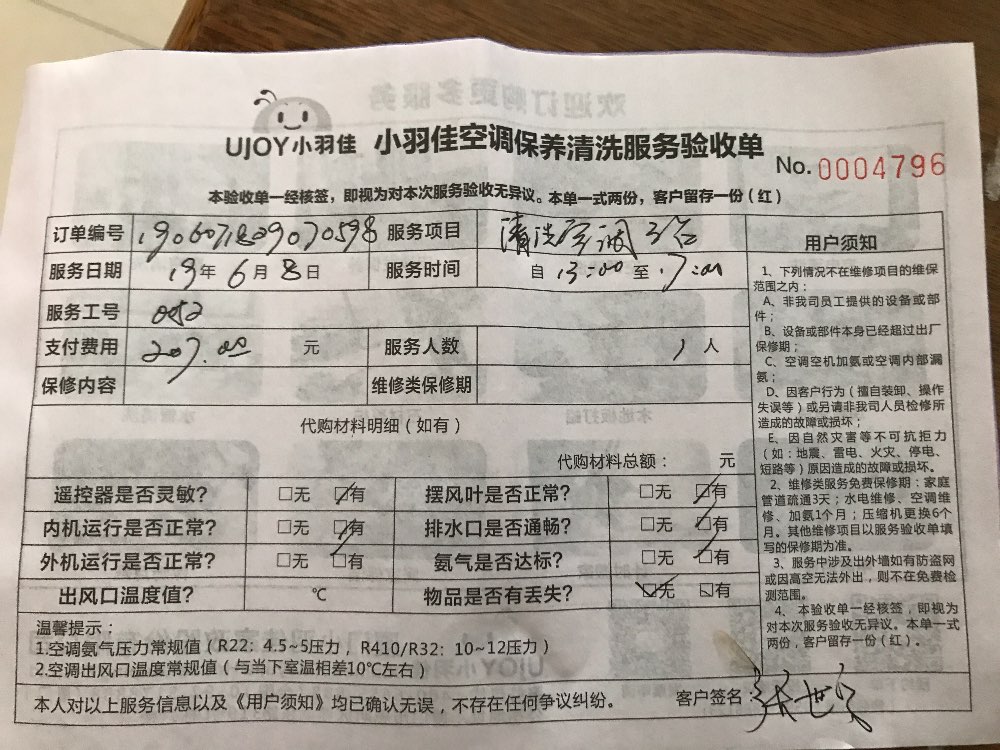 UJOY小羽佳 小羽佳空调保养清洗服务验收单
No. 0004796
本验收单一经核签，即视为对本次服务验收无异议。本单一式两份，客户留存一份（红）
订单编号 服务项目 清洗空调3台
服务日期 19年6月8日 服务时间 自13:00至17:00
服务工号 0052
支付费用 207.00 元 服务人数 1人
保修内容 维修类保修期
代购材料明细（如有）
代购材料总额： 元
遥控器是否灵敏？ □无 ☑有 摆风叶是否正常？ □无 ☑有
内机运行是否正常？ □无 ☑有 排水口是否通畅？ □无 ☑有
外机运行是否正常？ □无 ☑有 氨气是否达标？ □无 ☑有
出风口温度值？ ℃ 物品是否有丢失？ ☑无 □有
温馨提示：
1.空调氨气压力常规值（R22：4.5~5压力，R410/R32：10~12压力）
2.空调出风口温度常规值（与当下室温相差10℃左右）
本人对以上服务信息以及《用户须知》均已确认无误，不存在任何争议纠纷。 客户签名：
用户须知
1、下列情况不在维修项目的维保
范围之内：
A、非我司员工提供的设备或部
件；
B、设备或部件本身已经超过出厂
保修期；
C、空调空机加氨或空调内部漏
氨；
D、因客户行为（擅自装卸、操作
失误等）或另请非我司人员检修所
造成的故障或损坏；
E、因自然灾害等不可抗拒力
（如：地震、雷电、火灾、停电、
短路等）原因造成的故障或损坏。
2、维修类服务免费保修期：家庭
管道疏通3天；水电维修、空调维
修、加氨1个月；压缩机更换6个
月。其他维修项目以服务验收单填
写的保修期为准。
3、服务中涉及出外墙如有防盗网
或因高空无法外出，则不在免费检
测范围。
4、本验收单一经核签，即视为
对本次服务验收无异议。本单一式
两份，客户留存一份（红）。